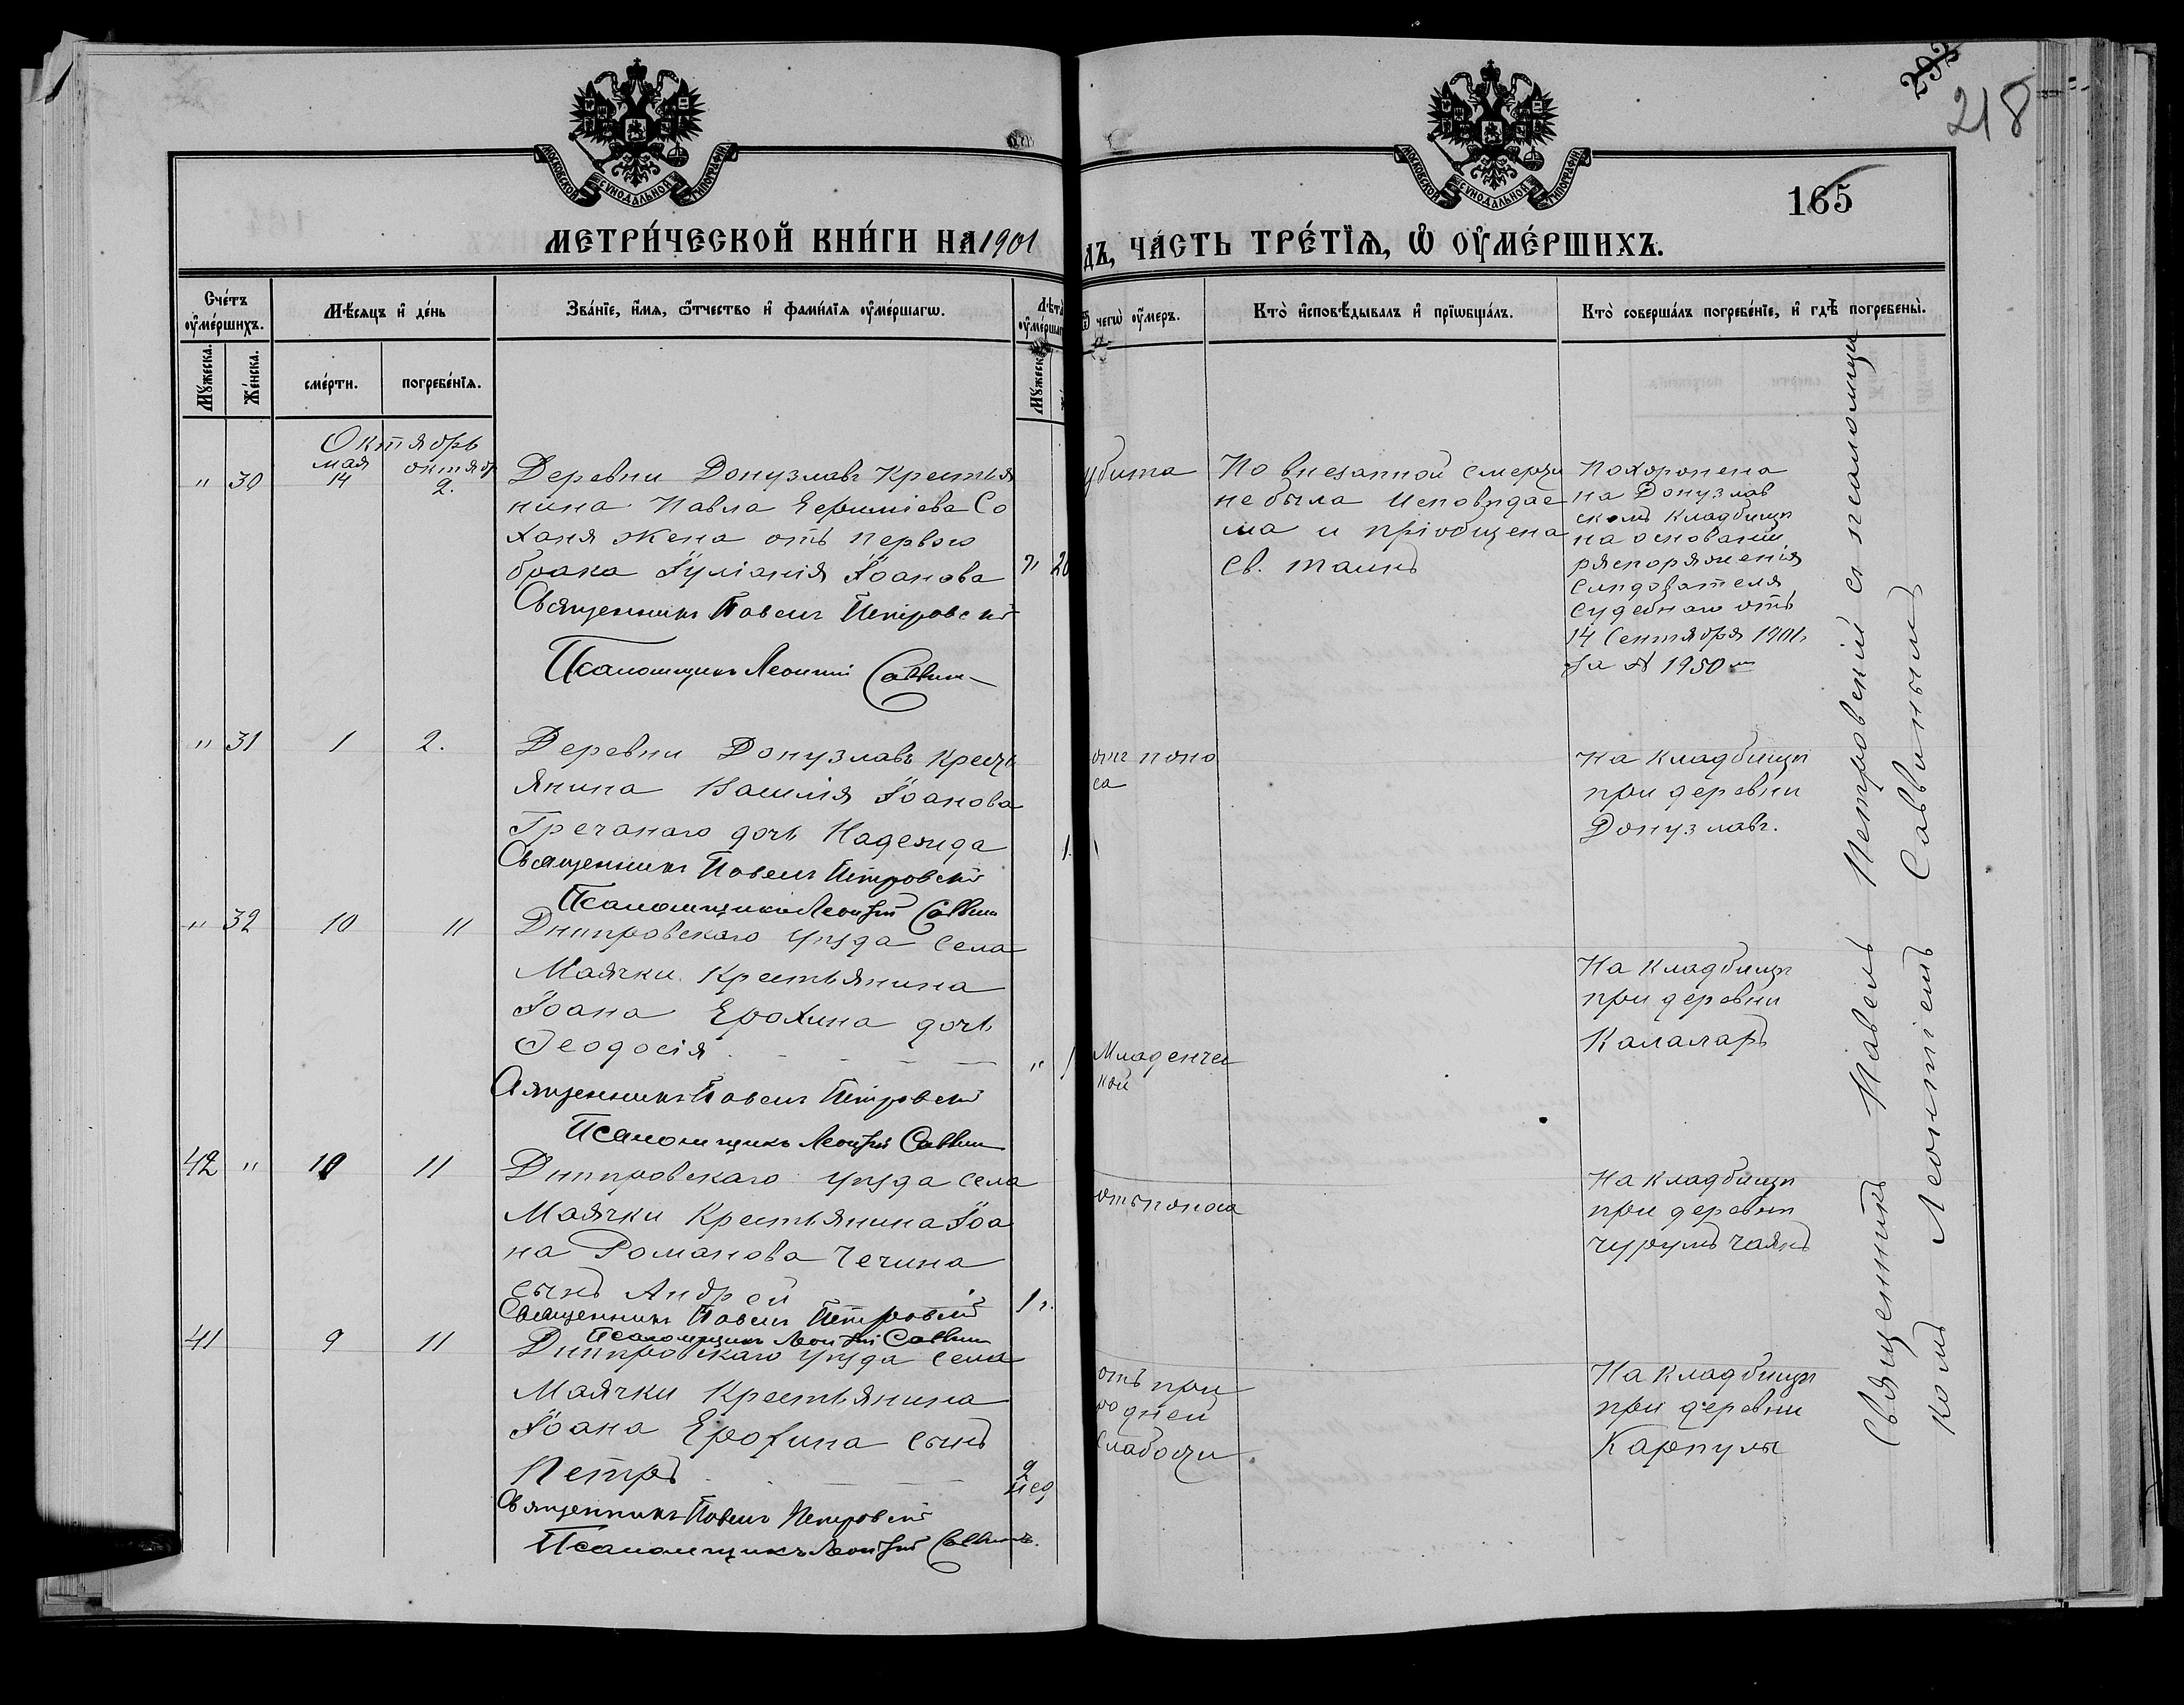 МОСКОВСКОЙ СУНОДАЛЬНОЙ ТИПОГРАФІИ
МОСКОВСКОЙ СУНОДАЛЬНОЙ ТИПОГРАФІИ
218
165
МЕТРИ́ЧЕСКОЙ КНИ́ГИ НА 1901
ДЪ, ЧА́СТЬ ТРЕ́ТІЯ, Ѽ ОУМЕ́РШИХЪ.
Сче́тъ оуме́ршихъ.
Мѣ́сяцъ и де́нь
Зва́ніе, и́мя, ѻ́тчество и фами́лія оуме́ршагѡ.
Лѣта̀ оуме́ршаг
Ѿ чегѡ̀ оу́меръ.
Кто̀ исповѣ́дывалъ и пріѡбща́лъ.
Кто̀ соверша́лъ погребе́ніе, и гдѣ̀ погребены̀.
Мꙋ́жеска.
Же́нска.
сме́рти.
погребе́нія.
Мꙋ́жеска
Октябрь
" 30
мая
14
октябр
2.
Деревни Донузлавъ Крестья
нина Павла Ефиміева Со
ханя жена отъ перваго
брака Іуліанія Іоанова
" 20
Священникъ Павелъ Петровскій
Псаломщикъ Леонтій Саввин
убита
По внезапной смерти
не была исповѣдае
ма и пріобщена
Св. таинъ
Похоронена
на Донузлав
скомъ кладбищѣ
на основаніи
распоряженія
Слѣдователя
Судебнаго отъ
14 Сентября 1901
за № 1950
" 31 1 2.
Деревни Донузлавъ Крест
янина Василія Іоанова
Гречанаго дочь Надежда
1.
Священникъ Павелъ Петровскій
Псаломщикъ Леонтій Саввин
отъ поно
са
На кладбищѣ
при деревни
Донузлавъ.
" 32 10 11
Днѣпровскаго уѣзда села
Маячки Крестьянина
Іоана Ерохина дочь
Ѳеодосія
" 1
Священникъ Павелъ Петровскій
Псаломщикъ Леонтій Саввин
Младенчес
кой
На кладбищѣ
при деревни
Калаларъ
42 " 10 11
Днѣпровскаго уѣзда села
Маячки Крестьянина Іоа
на Романова Чечина
сынъ Андрей
1 г.
Священникъ Павелъ Петровскій
Псаломщикъ Леонтій Саввин
отъ поноса
На кладбищѣ
при деревни
41 9 11
Днѣпровскаго уѣзда села
Маячки Крестьянина
Іоана Ерохина сынъ
Петръ
2
нед
Священникъ Павелъ Петровскій
Псаломщикъ Леонтій Саввинъ.
отъ при
родней
слабости
На кладбищѣ
при деревни
Карпулы
Священникъ Павелъ Петровскій съ псаломщи
комъ Леонтіемъ Саввинымъ